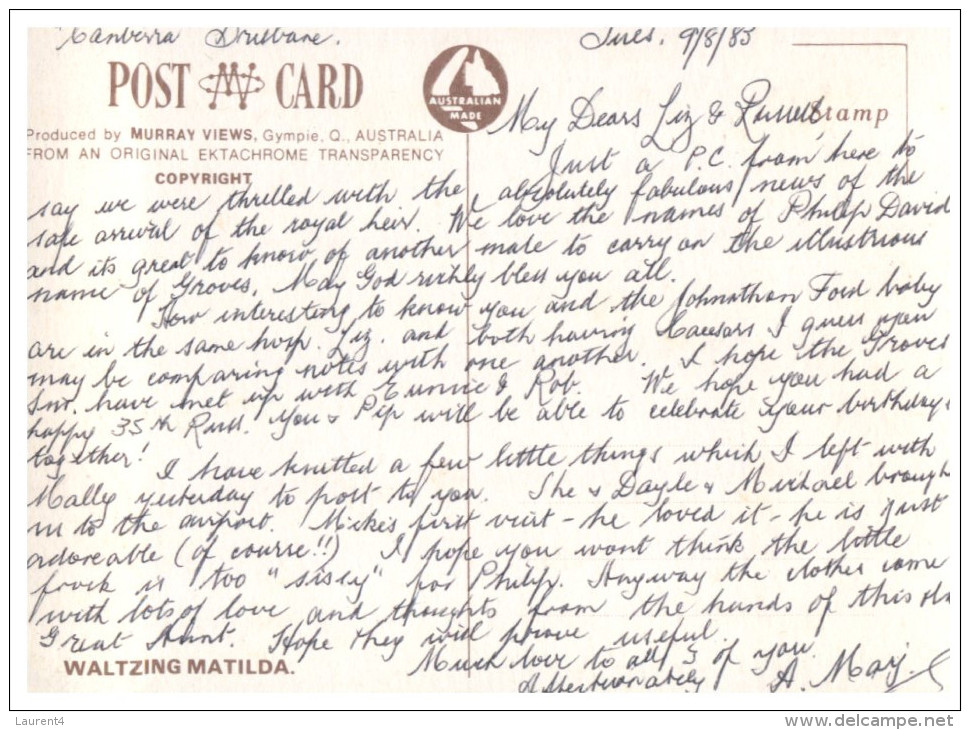 Canberra Brisbane.
Tues. 9/8/85
POST CARD
AUSTRALIAN
MADE
Stamp
Produced by MURRAY VIEWS, Gympie, Q., AUSTRALIA
FROM AN ORIGINAL EKTACHROME TRANSPARENCY
COPYRIGHT
My Dears Liz & Russell
Just a P.C. from here to
say we were thrilled with the absolutely fabulous news of the
safe arrival of the royal heir. We love the names of Philip David
and its great to know of another male to carry on the illustrious
name of Groves. May God richly bless you all.
How interesting to know you and the Johnathan Ford baby
are in the same hosp. Liz. and both having Caesars I guess you
may be comparing notes with one another. I hope the Groves
Snr. have met up with Eunice & Rob. We hope you had a
happy 35th Russ. You & Pip will be able to celebrate your birthday
together!
I have knitted a few little things which I left with
Mally yesterday to post to you. She & Dayle & Michael brough
us to the airport. Mickes first visit - he loved it - he is just
adoreable (of course!!) I hope you wont think the little
frock is too "sissy" for Philip. Anyway the clothes come
with lots of love and thoughts from the hands of this
Great Aunt. Hope they will prove useful.
Much love to all 3 of you.
Affectionately A. Marj.
WALTZING MATILDA.
Laurent4
www.delcampe.net